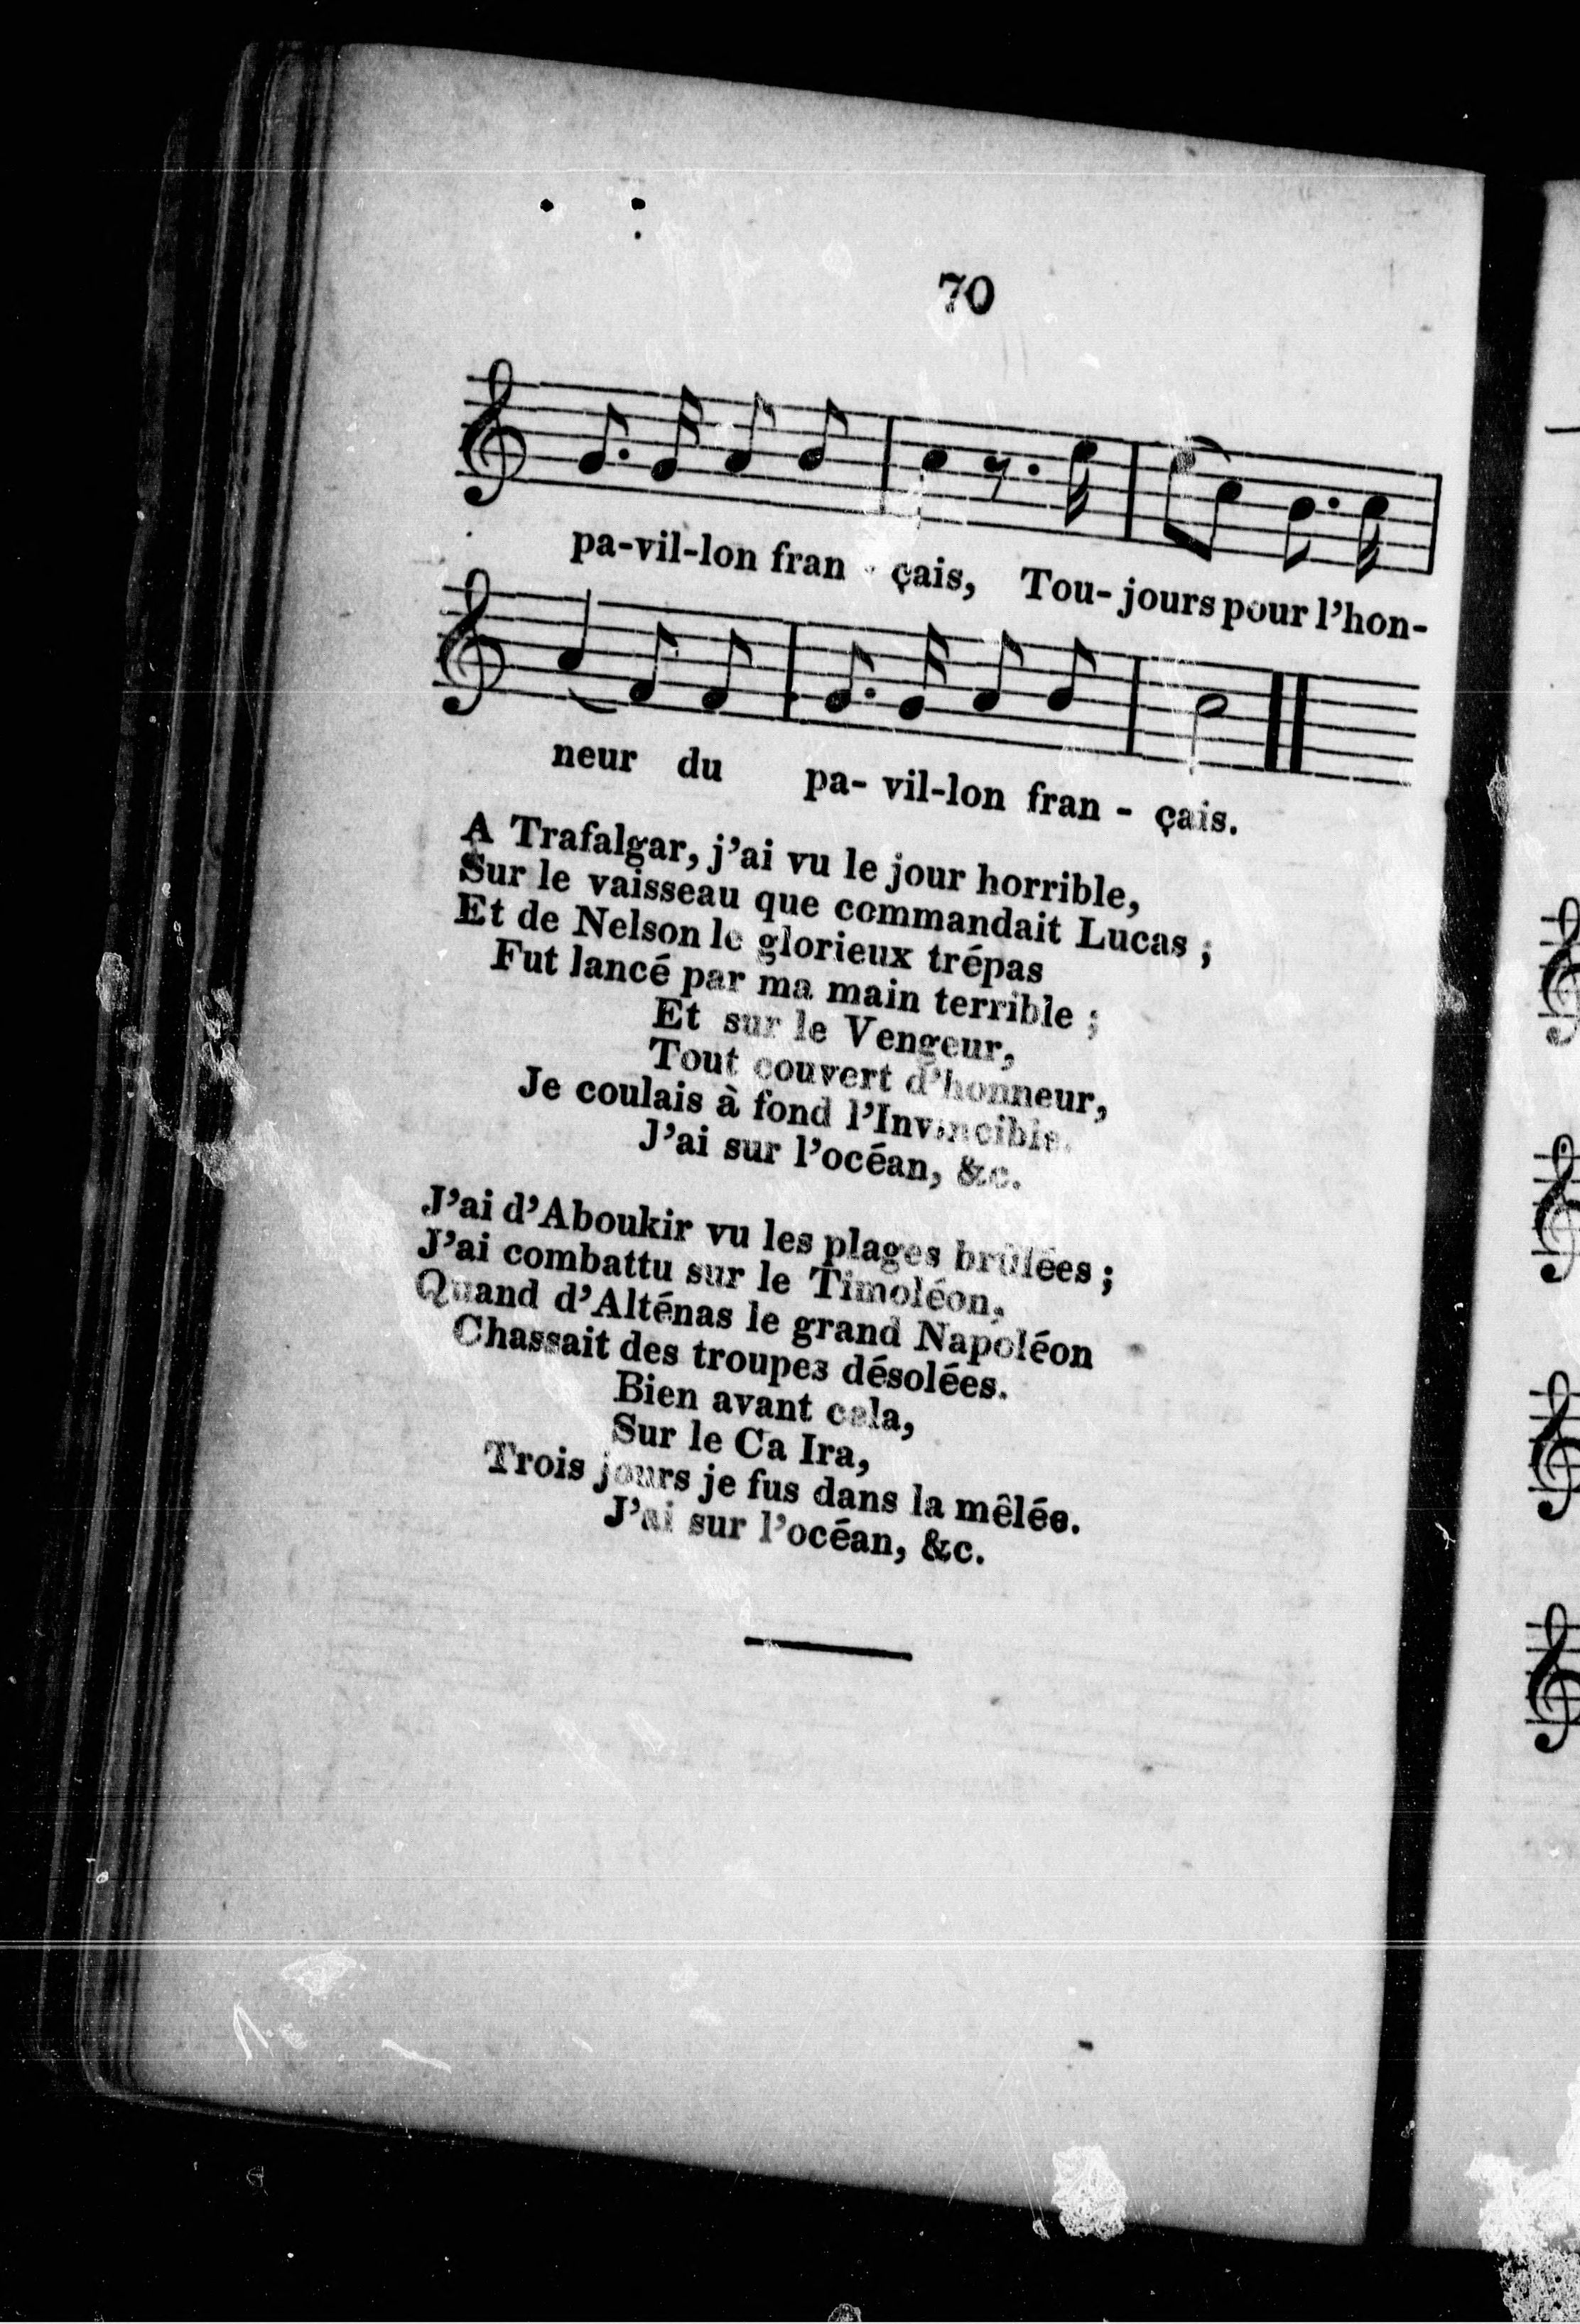 70
pa-vil-lon fran - çais, Tou-jours pour l'hon-
neur du pa- vil-lon fran - çais.
A Trafalgar, j'ai vu le jour horrible,
Sur le vaisseau que commandait Lucas ;
Et de Nelson le glorieux trépas
Fut lancé par ma main terrible ;
Et sur le Vengeur,
Tout couvert d'honneur,
Je coulais à fond l'Invincible.
J'ai sur l'océan, &c.
J'ai d'Aboukir vu les plages brûlées ;
J'ai combattu sur le Timoléon,
Quand d'Alténas le grand Napoléon
Chassait des troupes désolées.
Bien avant cela,
Sur le Ca Ira,
Trois jours je fus dans la mêlée.
J'ai sur l'océan, &c.